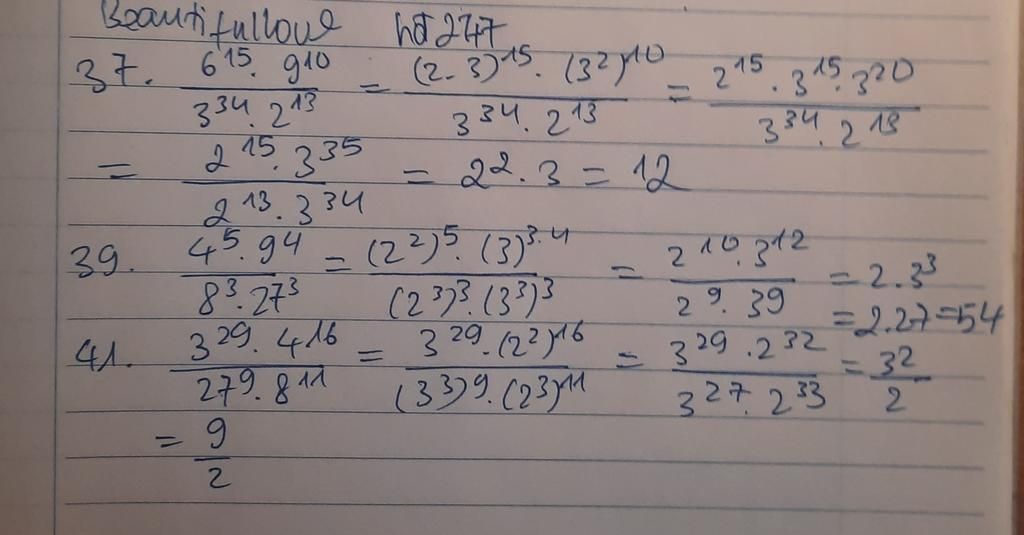 Beautifullove № 247
37. 6^15 · 9^10 / 3^34 · 2^13 = (2 - 3)^15 · (3^2)^10 / 3^34 · 2^13 = 2^15 · 3^15 · 3^20 / 3^34 · 2^13
= 2^15 · 3^35 / 2^13 · 3^34 = 2^2 · 3 = 12
39. 4^5 · 9^4 / 8^3 · 27^3 = (2^2)^5 · (3)^3·4 / (2^3)^3 · (3^3)^3 = 2^10 · 3^12 / 2^9 · 39 = 2 · 3^3
= 2.27 = 54
41. 3^29 · 4^16 / 27^9 · 8^11 = 3^29 · (2^2)^16 / (3^3)^9 · (2^3)^11 = 3^29 · 2^32 / 3^27 · 2^33 = 3^2 / 2
= 9 / 2